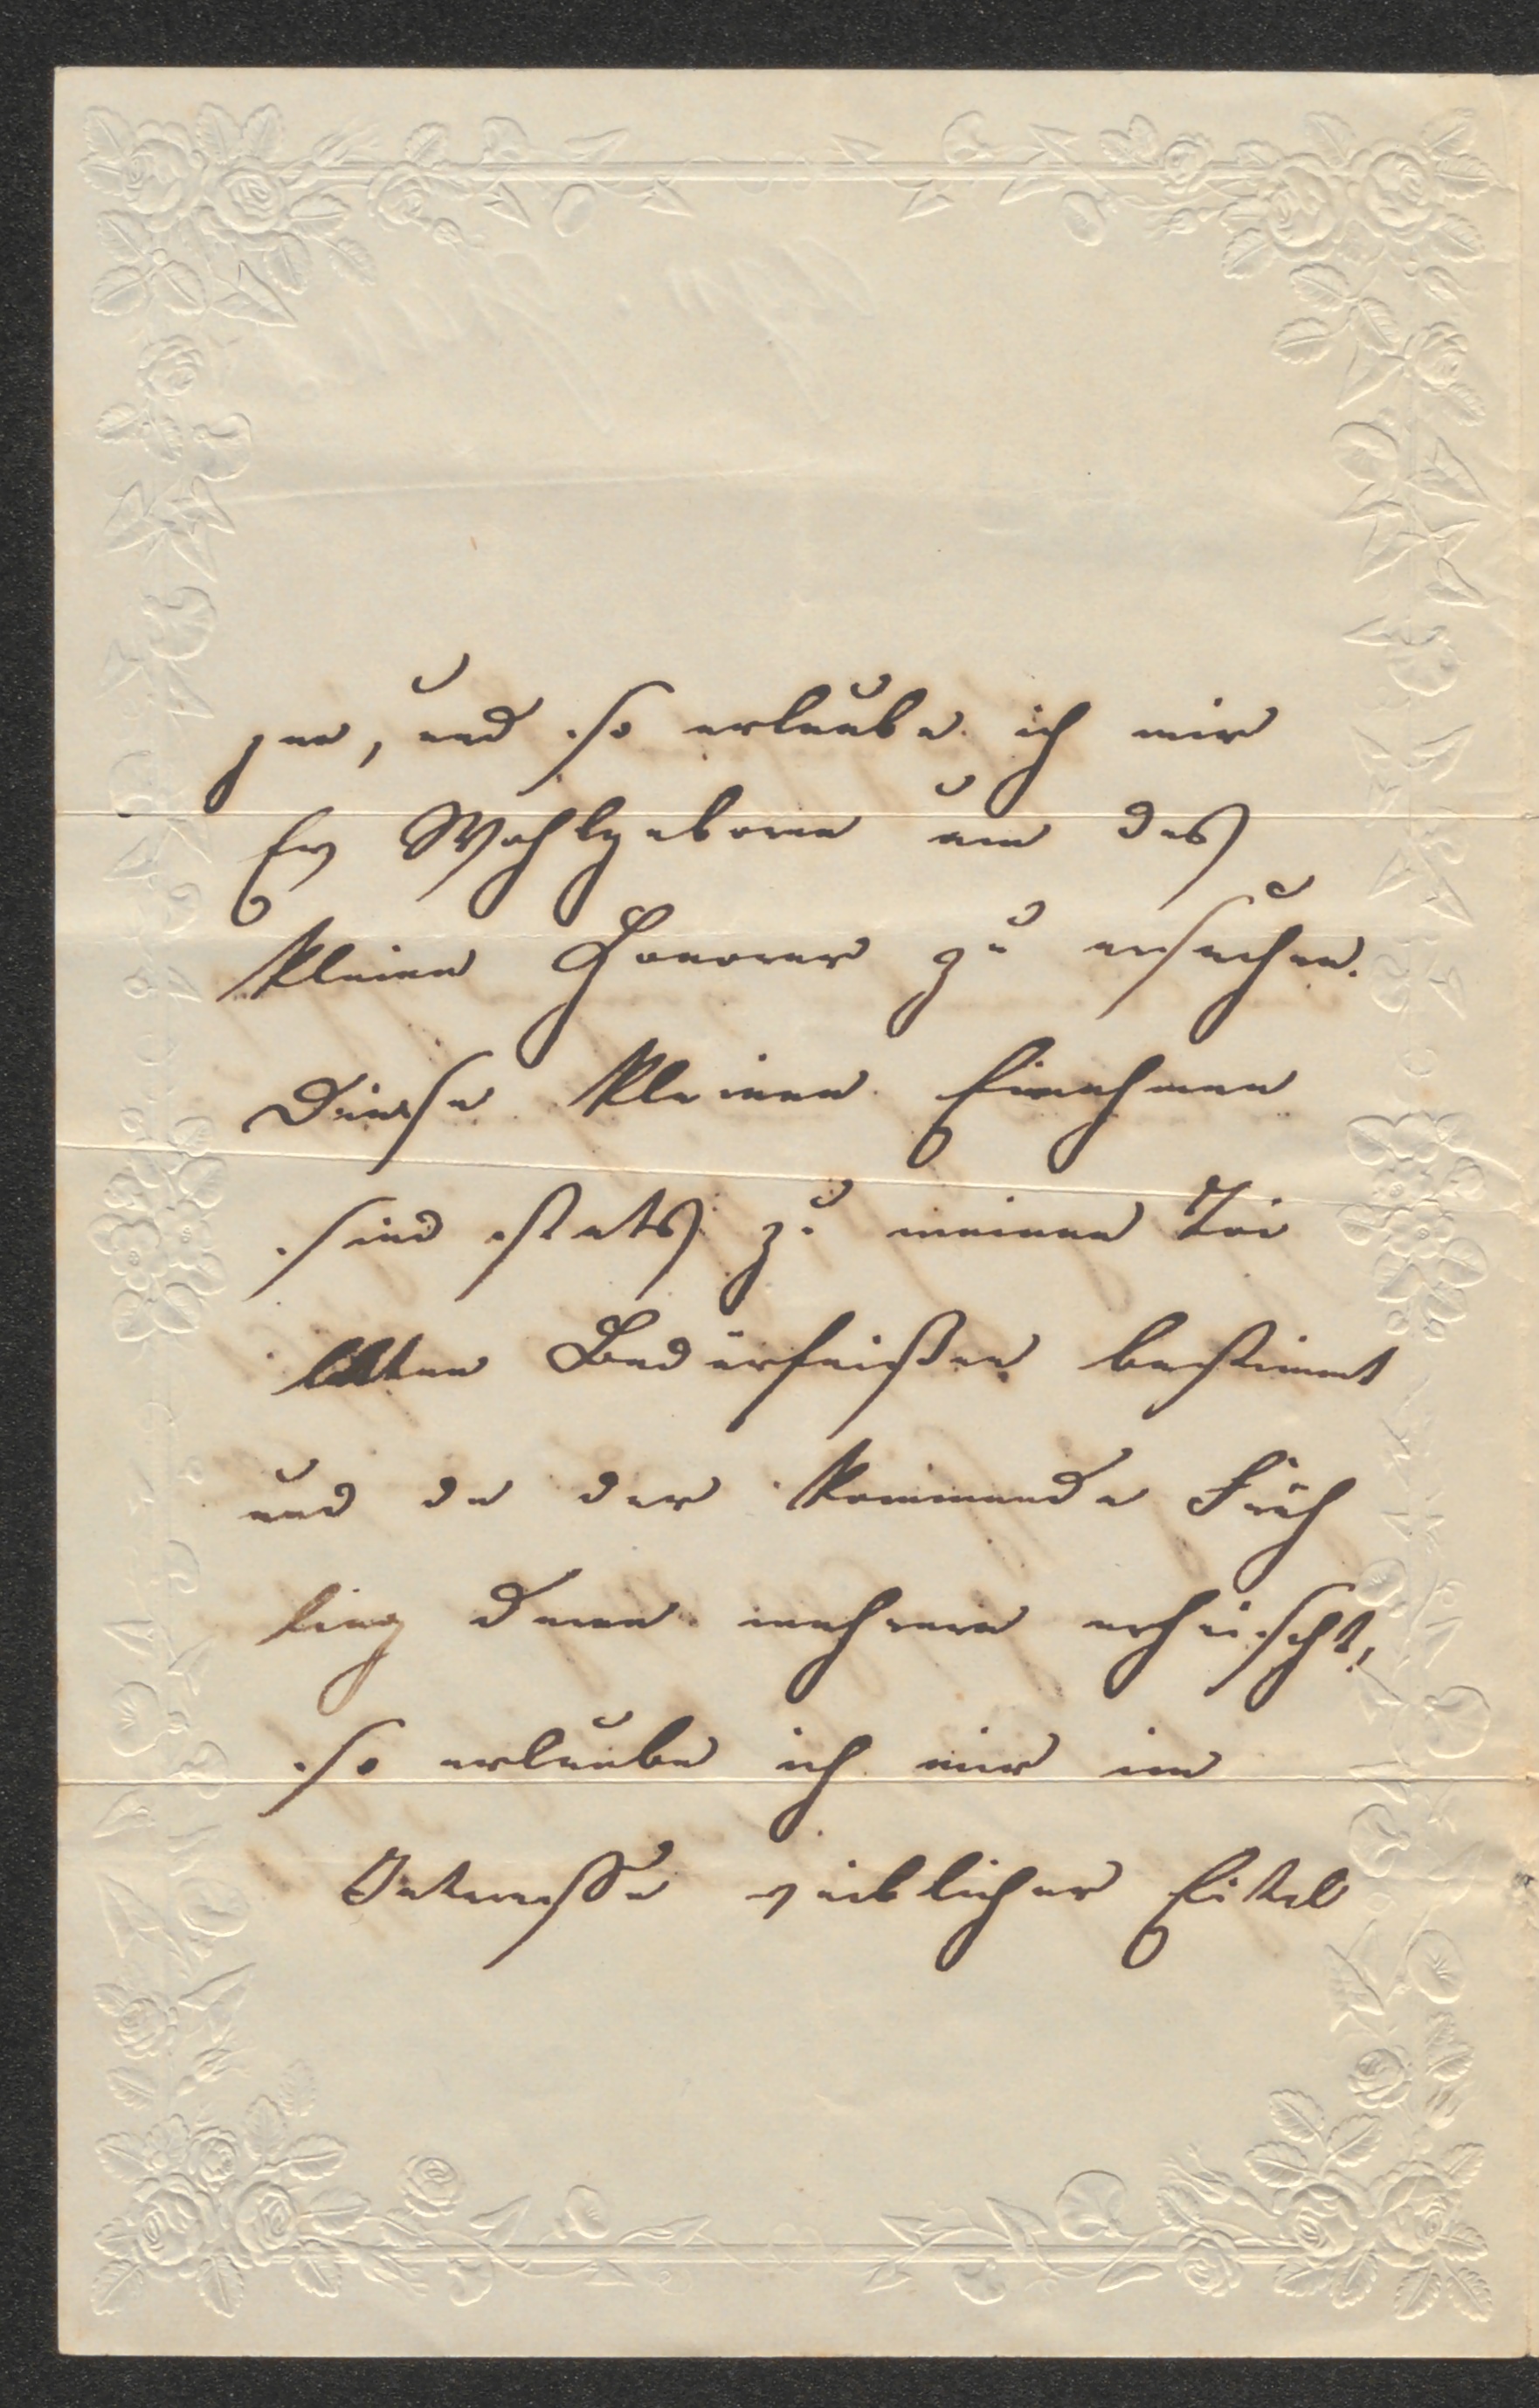 gen, und so erlaube ich mir
Ew Wohlgeboren um das
kleine Honorar zu ersuchen.
Diese kleinen Einahmen
sind stets zu meinen Toi
letten Bedürfnißen bestimmt
und da der kommende Früh
ling deren mehrere erheischt,
so erlaube ich mir im
Interesse weiblicher Eitel